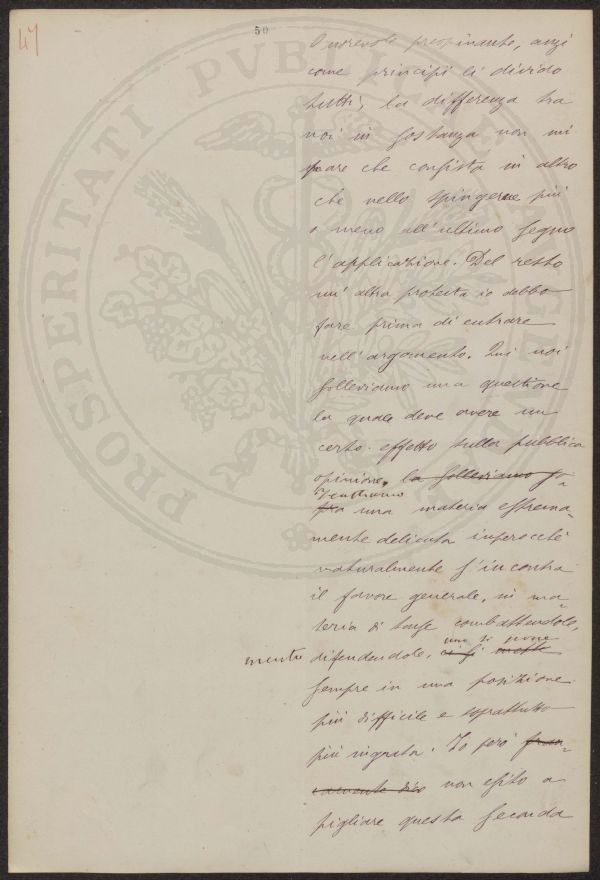 47
50
Onorevole preopinante, anzi
come principii li divido
tutti, la differenza tra
noi in sostanza non mi
pare che consista in altro
che nello spingerne più
o meno all'ultimo segno
l'applicazione. Del resto
un'altra protesta io debbo
fare prima di entrare
nell'argomento. Qui noi
solleviamo una questione
la quale deve avere un
certo effetto sulla pubblica
opinione, la solleviamo so-
Tentiamo
pra una materia estrema-
mente delicata imperocché
naturalmente s'incontra
il favore generale, in ma-
teria di tasse combattendole,
uno si pone
mentre difendendole, ci si mette
sempre in una posizione
più difficile e soprattutto
più ingrata. Io però fran-
camente dico non esito a
pigliare questa seconda
PROSPERITATI PVBLICAE